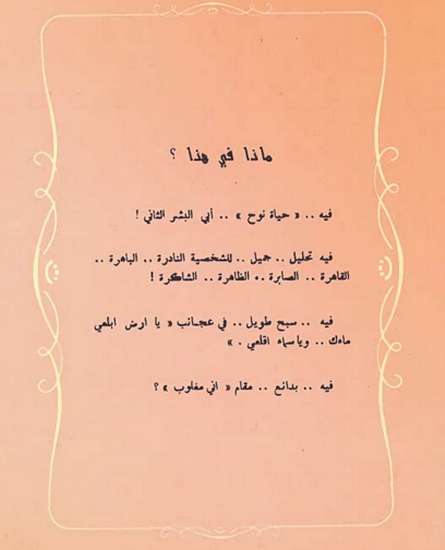 ماذا في هذا ؟
فيه .. « حياة نوح » .. أبي البشر الثاني !
فيه تحليل .. جميل .. للشخصية النادرة .. الباهرة ..
القاهرة .. الصابرة .. الظاهرة .. الشاكرة !
فيه .. سبح طويل .. في عجائب « يا ارض ابلعي
ماءك .. وياسماء اقلعي . »
فيه .. بدائع .. مقام « اني مغلوب » ؟